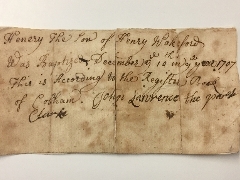 Henery The Son of Henry Wakeford
Was Baptized December ye 10th in ye year 1707
This is According to the Register Book
of Cobham John Lawrence the parish
Clarke